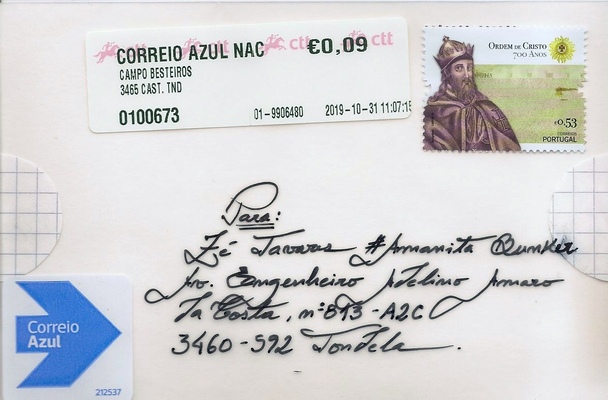 CORREIO AZUL NAC €0,09
ctt ctt ctt
CAMPO BESTEIROS
3465 CAST. TND
0100673 01-9906480 2019-10-31 11:07:15
ORDEM DE CRISTO
700 ANOS
€0,53
CORREIOS
PORTUGAL
Para:
Zé Tavares #Amanita Bunker
Av. Engenheiro Adelino Amaro
da Costa, nº 813 - A2C
3460-592 Tondela.
Correio
Azul
212537